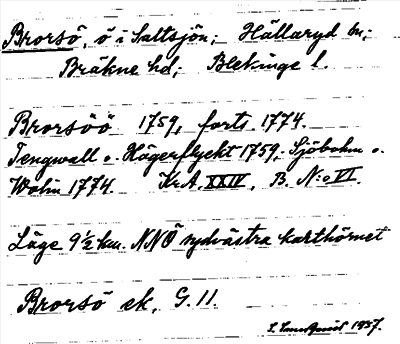 Brorsö, ö i Saltsjön; Hällaryd sn;
Bräkne hd; Blekinge l.
Brorsöö 1759, forts. 1774.
Tengwall o. Hägerflyckt 1759, Sjöbohm o.
Wåhlin 1774. Kr.A. XXIV. B. N:o VI.
Läge 9½ km. NNÖ sydvästra karthörnet
Brorsö ek. G. 11.
1937.